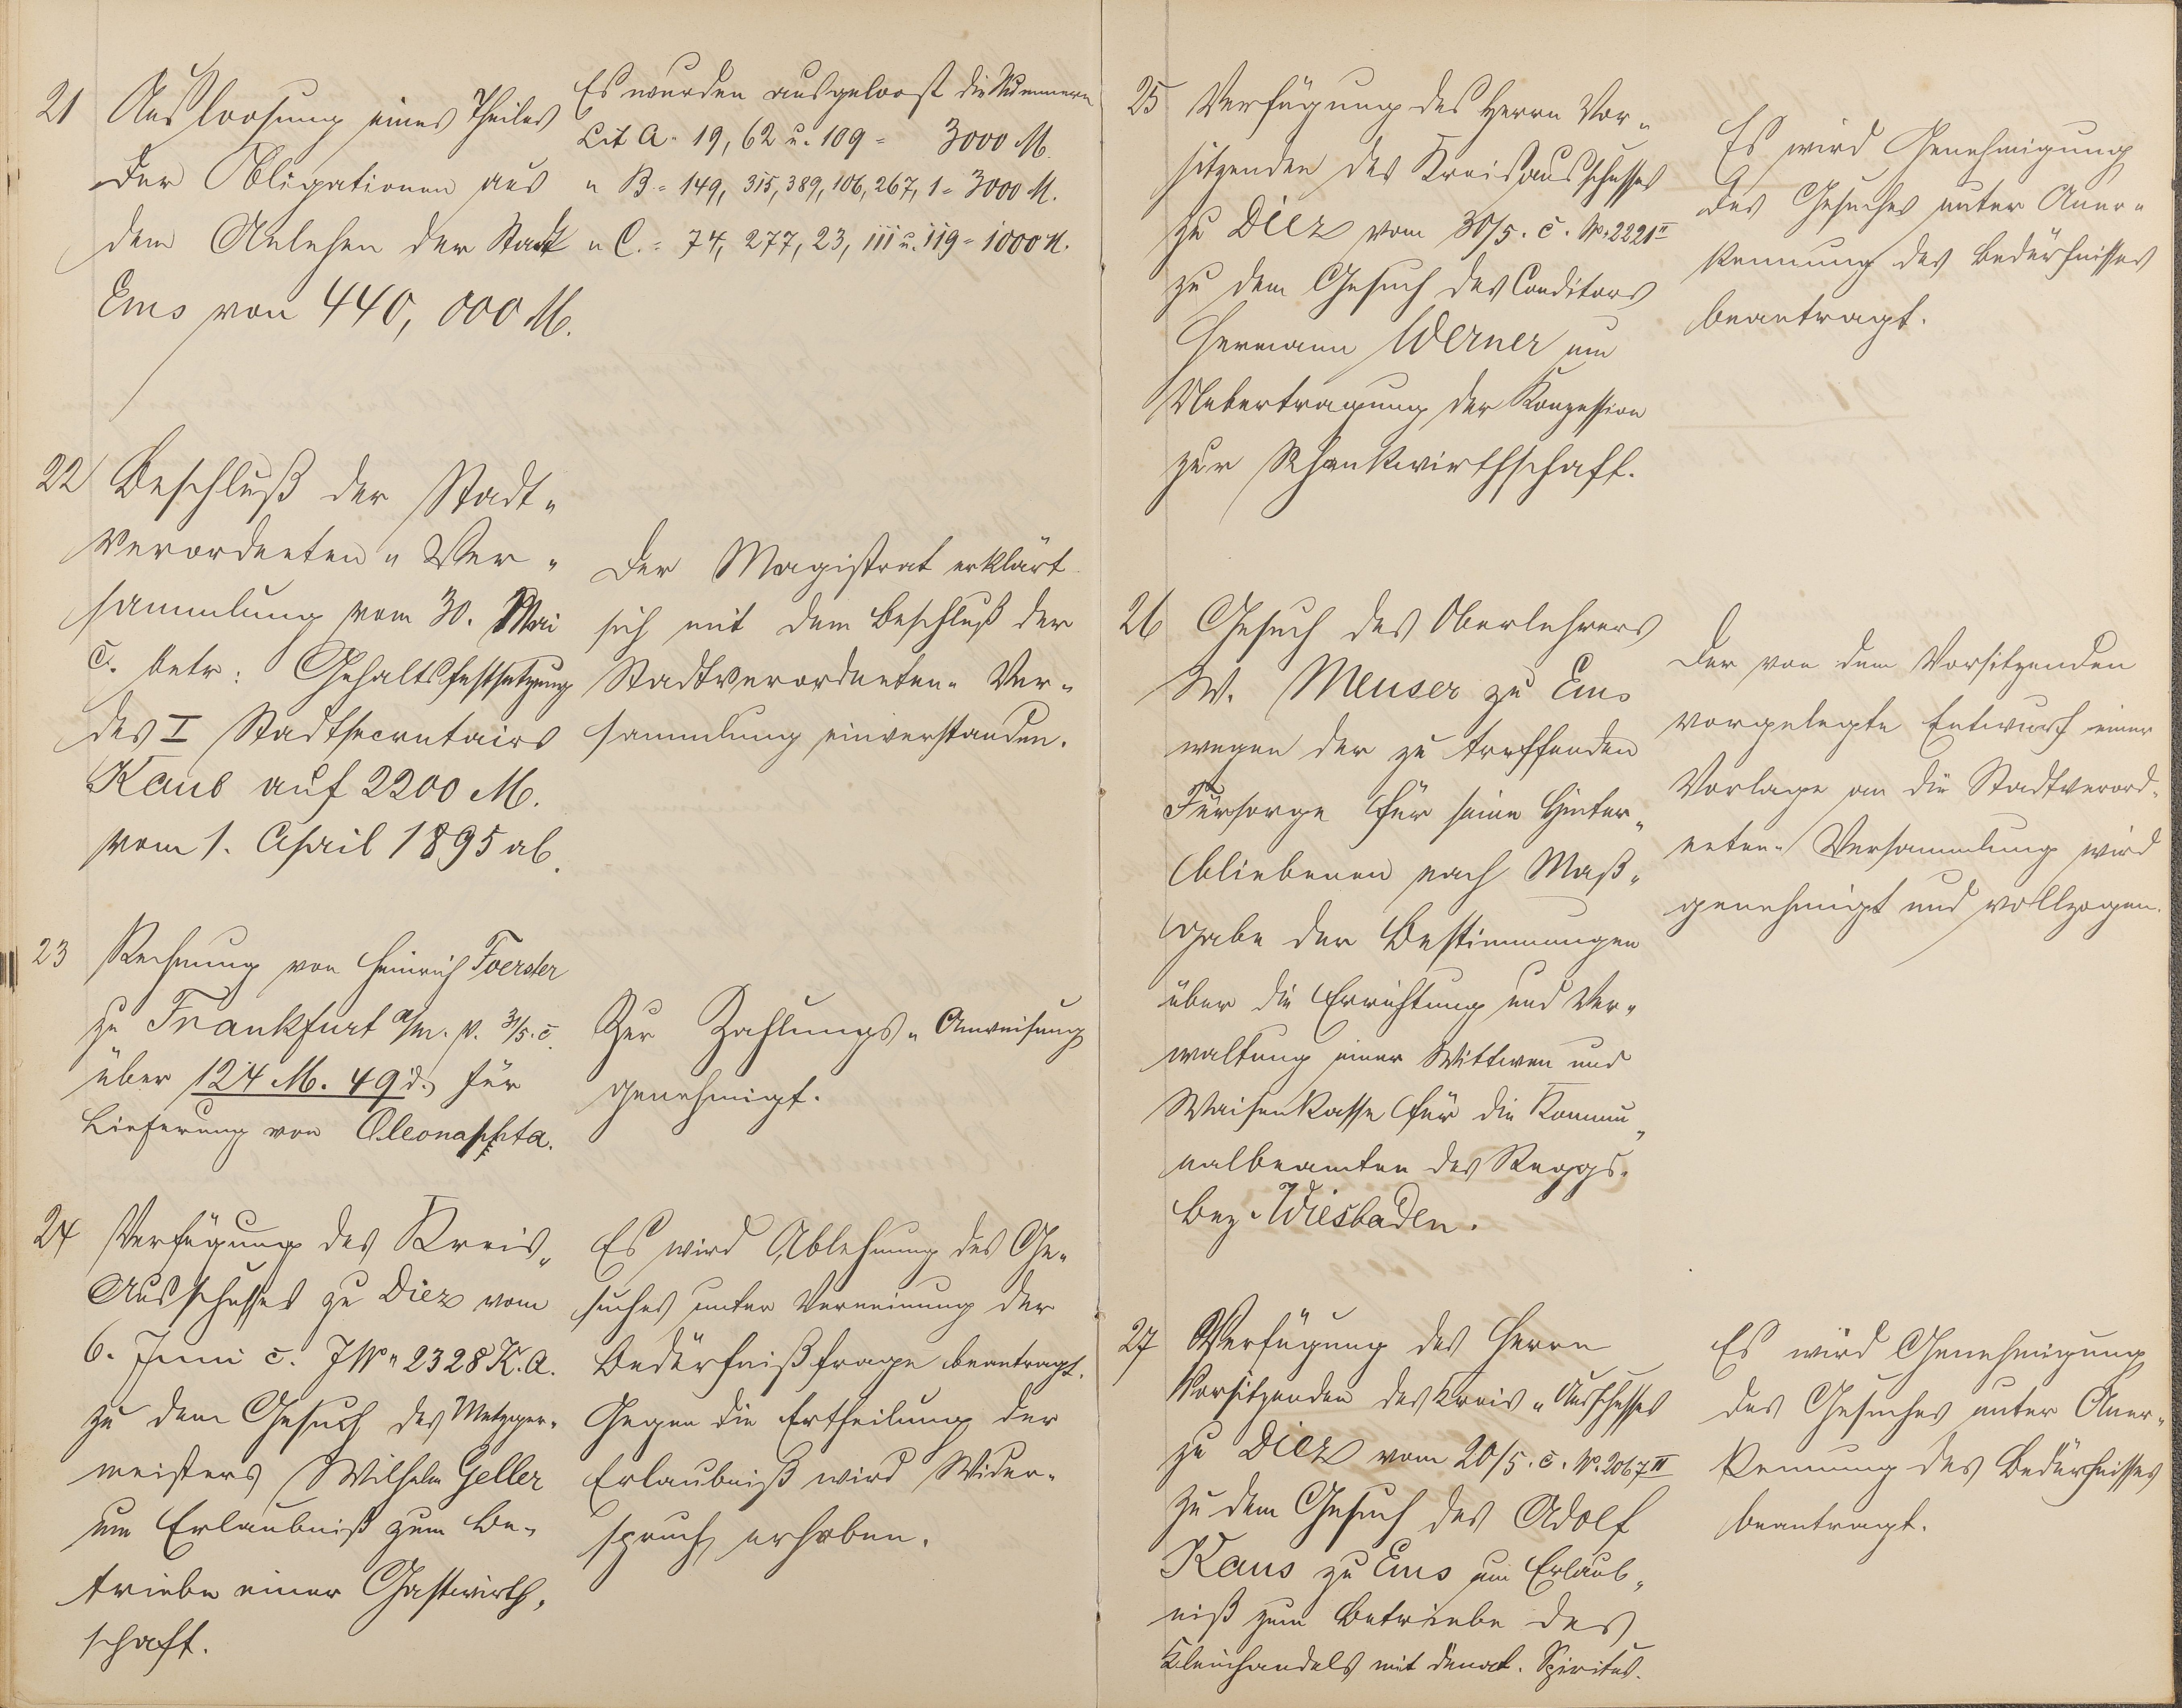 21 Ausloosung eines Theiles
der Obligationen aus
dem Anlehen der Stadt
Ems von 440,000 M.
Es wurden ausgeloost die Nummern
Lit A. 19, 62 u. 109 = 3000 M.
" B = 149, 315, 389, 106, 267, 1 = 3000 M.
" C. = 74, 277, 23, 111 u. 119 = 1000 M.
22 Beschluß der Stadt-
verordneten-Ver-
sammlung vom 30. Mai
c. betr: Gehaltsfestsetzung
des I Stadtsecretairs
Kaul auf 2200 M.
vom 1. April 1895 ab.
Der Magistrat erklärt
sich mit dem Beschluß der
Stadtverordneten-Ver-
sammlung einverstanden.
23 Rechnung von Heinrich Foerster
zu Frankfurt a/m. p. 31/5. c.
über 124 M. 49 d. für
Lieferung von Oleonaphta.
Zur Zahlungs-Anweisung
genehmigt.
24 Verfügung des Kreis-
Ausschusses zu Diez vom
6. Juni c. JNo 2328 K.A.
zu dem Gesuch des Metzger-
meisters Wilhelm Geller
um Erlaubniß zum Be-
triebe einer Gastwirth-
schaft.
Es wird Ablehnung des Ge-
suches unter Verneinung der
Bedürfnißfrage beantragt.
Gegen die Ertheilung der
Erlaubniß wird Wider-
spruch erhoben.
25 Verfügung des Herrn Vor-
sitzenden des Kreisausschusses
zu Diez vom 30/5. c. No. 2221 II
zu dem Gesuch des Conditors
Hermann Werner um
Uebertragung der Konzession
zur Schankwirthschaft.
Es wird Genehmigung
des Gesuches unter Aner-
kennung des Bedürfnisses
beantragt.
26 Gesuch des Oberlehrers
W. Meuser zu Ems
wegen der zu treffenden
Fürsorge für seine Hinter-
bliebenen nach Maß-
gabe der Bestimmungen
über die Errichtung und Ver-
waltung einer Wittwen und
Waisenkasse für die Kommu-
nalbeamten des Reggs.
Bez. Wiesbaden.
Der von dem Vorsitzenden
vorgelegte Entwurf einer
Vorlage an die Stadtverord-
neten-Versammlung wird
genehmigt und vollzogen.
27 Verfügung des Herrn
Vorsitzenden des Kreis-Ausschusses
zu Diez vom 20/5. c. No. 2067 II
zu dem Gesuch des Adolf
Kaus zu Ems um Erlaub-
niß zum Betriebe des
Kleinhandels mit denat. Spiritus.
Es wird Genehmigung
des Gesuches unter Aner-
kennung des Bedürfnisses
beantragt.